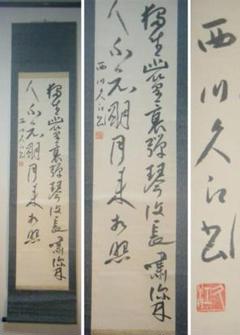 獨坐幽篁裏彈琴復長嘯深林
人不知明月来相照
西川久江書
獨坐幽篁裏彈琴復長嘯深林
人不知明月来相照
西川久江書
西川久江書